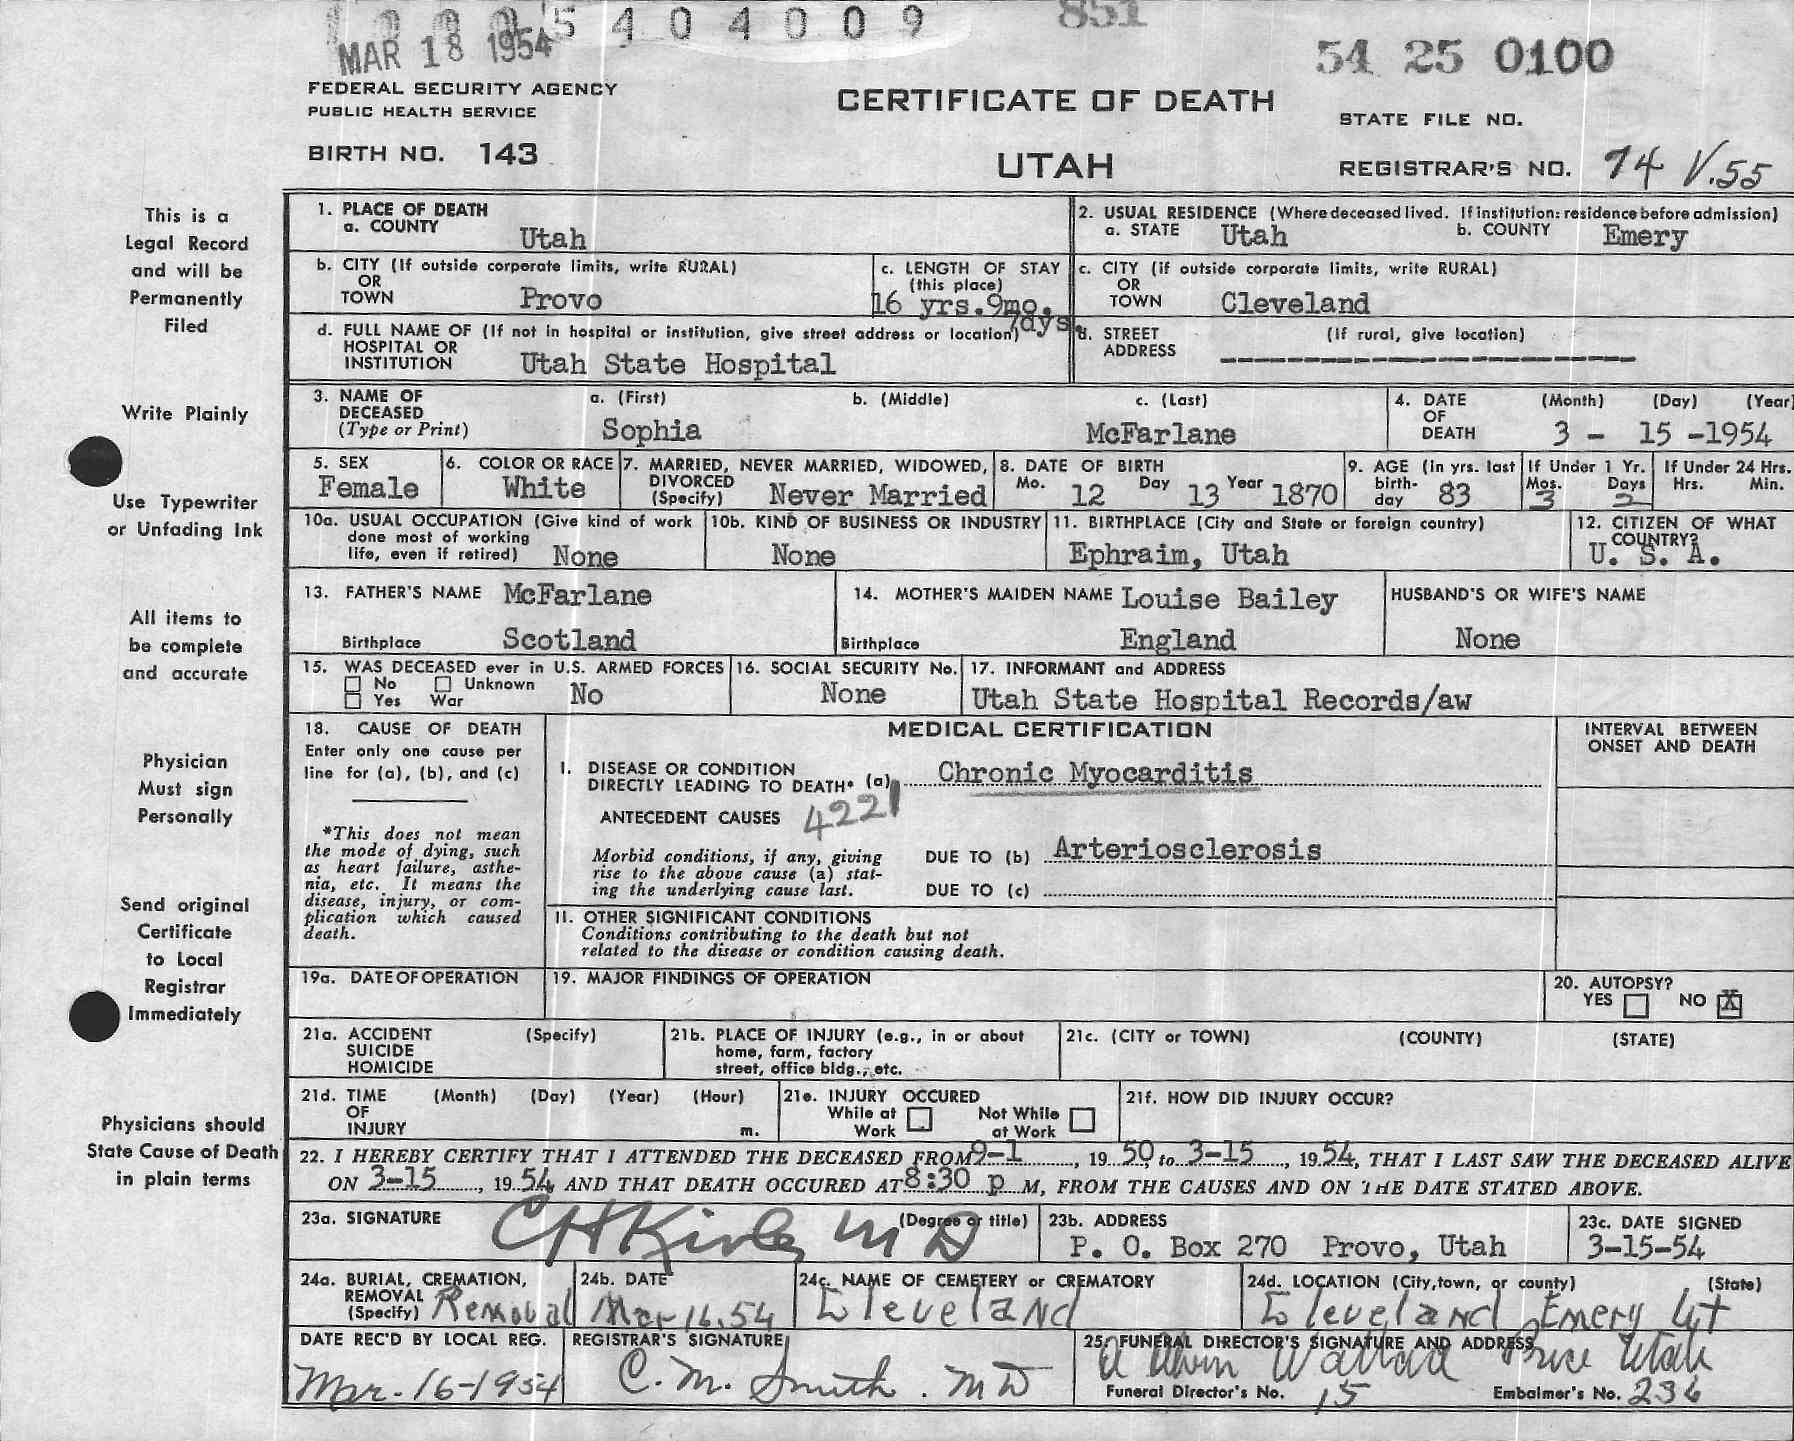 5 4 0 4 0 0 9 851
MAR 18 1954 54 25 0100
FEDERAL SECURITY AGENCY
PUBLIC HEALTH SERVICE
CERTIFICATE OF DEATH
STATE FILE NO.
BIRTH NO. 143
UTAH
REGISTRAR'S NO. 74 V.55
This is a
Legal Record
and will be
Permanently
Filed
Write Plainly
Use Typewriter
or Unfading Ink
All items to
be complete
and accurate
Physician
Must sign
Personally
Send original
Certificate
to Local
Registrar
Immediately
Physicians should
State Cause of Death
in plain terms
1. PLACE OF DEATH
a. COUNTY Utah
2. USUAL RESIDENCE (Where deceased lived. If institution: residence before admission)
a. STATE Utah b. COUNTY Emery
b. CITY (If outside corporate limits, write RURAL)
OR
TOWN Provo
c. LENGTH OF STAY
(this place)
16 yrs. 9mo.
7days.
c. CITY (if outside corporate limits, write RURAL)
OR
TOWN Cleveland
d. FULL NAME OF (If not in hospital or institution, give street address or location)
HOSPITAL OR
INSTITUTION Utah State Hospital
d. STREET (If rural, give location)
ADDRESS --------------------
3. NAME OF a. (First) b. (Middle) c. (Last)
DECEASED
(Type or Print) Sophia McFarlane
4. DATE (Month) (Day) (Year)
OF
DEATH 3 - 15 -1954
5. SEX
Female
6. COLOR OR RACE
White
7. MARRIED, NEVER MARRIED, WIDOWED,
DIVORCED
(Specify) Never Married
8. DATE OF BIRTH
Mo. 12 Day 13 Year 1870
9. AGE (In yrs. last
birth-
day 83
If Under 1 Yr.
Mos. Days
3 2
If Under 24 Hrs.
Hrs. Min.
10a. USUAL OCCUPATION (Give kind of work
done most of working
life, even if retired) None
10b. KIND OF BUSINESS OR INDUSTRY
None
11. BIRTHPLACE (City and State or foreign country)
Ephraim, Utah
12. CITIZEN OF WHAT
COUNTRY?
U. S. A.
13. FATHER'S NAME McFarlane
Birthplace Scotland
14. MOTHER'S MAIDEN NAME Louise Bailey
Birthplace England
HUSBAND'S OR WIFE'S NAME
None
15. WAS DECEASED ever in U.S. ARMED FORCES
☐ No ☐ Unknown No
☐ Yes War
16. SOCIAL SECURITY No.
None
17. INFORMANT and ADDRESS
Utah State Hospital Records/aw
18. CAUSE OF DEATH
Enter only one cause per
line for (a), (b), and (c)
*This does not mean
the mode of dying, such
as heart failure, asthe-
nia, etc. It means the
disease, injury, or com-
plication which caused
death.
MEDICAL CERTIFICATION
INTERVAL BETWEEN
ONSET AND DEATH
I. DISEASE OR CONDITION
DIRECTLY LEADING TO DEATH* (a) Chronic Myocarditis
ANTECEDENT CAUSES 4221
Morbid conditions, if any, giving
rise to the above cause (a) stat-
ing the underlying cause last.
DUE TO (b) Arteriosclerosis
DUE TO (c)
II. OTHER SIGNIFICANT CONDITIONS
Conditions contributing to the death but not
related to the disease or condition causing death.
19a. DATE OF OPERATION
19. MAJOR FINDINGS OF OPERATION
20. AUTOPSY?
YES ☐ NO ☒
21a. ACCIDENT (Specify)
SUICIDE
HOMICIDE
21b. PLACE OF INJURY (e.g., in or about
home, farm, factory
street, office bldg., etc.
21c. (CITY or TOWN) (COUNTY) (STATE)
21d. TIME (Month) (Day) (Year) (Hour)
OF
INJURY m.
21e. INJURY OCCURED
While at ☐ Not While ☐
Work at Work
21f. HOW DID INJURY OCCUR?
22. I HEREBY CERTIFY THAT I ATTENDED THE DECEASED FROM 9-1, 19 50, to 3-15, 19 54, THAT I LAST SAW THE DECEASED ALIVE
ON 3-15, 19 54, AND THAT DEATH OCCURED AT 8:30 P M, FROM THE CAUSES AND ON THE DATE STATED ABOVE.
23a. SIGNATURE (Degree or title)
M D
23b. ADDRESS
P. O. Box 270 Provo, Utah
23c. DATE SIGNED
3-15-54
24a. BURIAL, CREMATION,
REMOVAL
(Specify) Removal
24b. DATE
Mar 16, 54
24c. NAME OF CEMETERY or CREMATORY
Cleveland
24d. LOCATION (City, town, or county) (State)
Cleveland Emery Ut
DATE REC'D BY LOCAL REG.
Mar. 16-1954
REGISTRAR'S SIGNATURE
C. M. Smith. MD
25. FUNERAL DIRECTOR'S SIGNATURE AND ADDRESS
Price Utah
Funeral Director's No. 15 Embalmer's No. 236